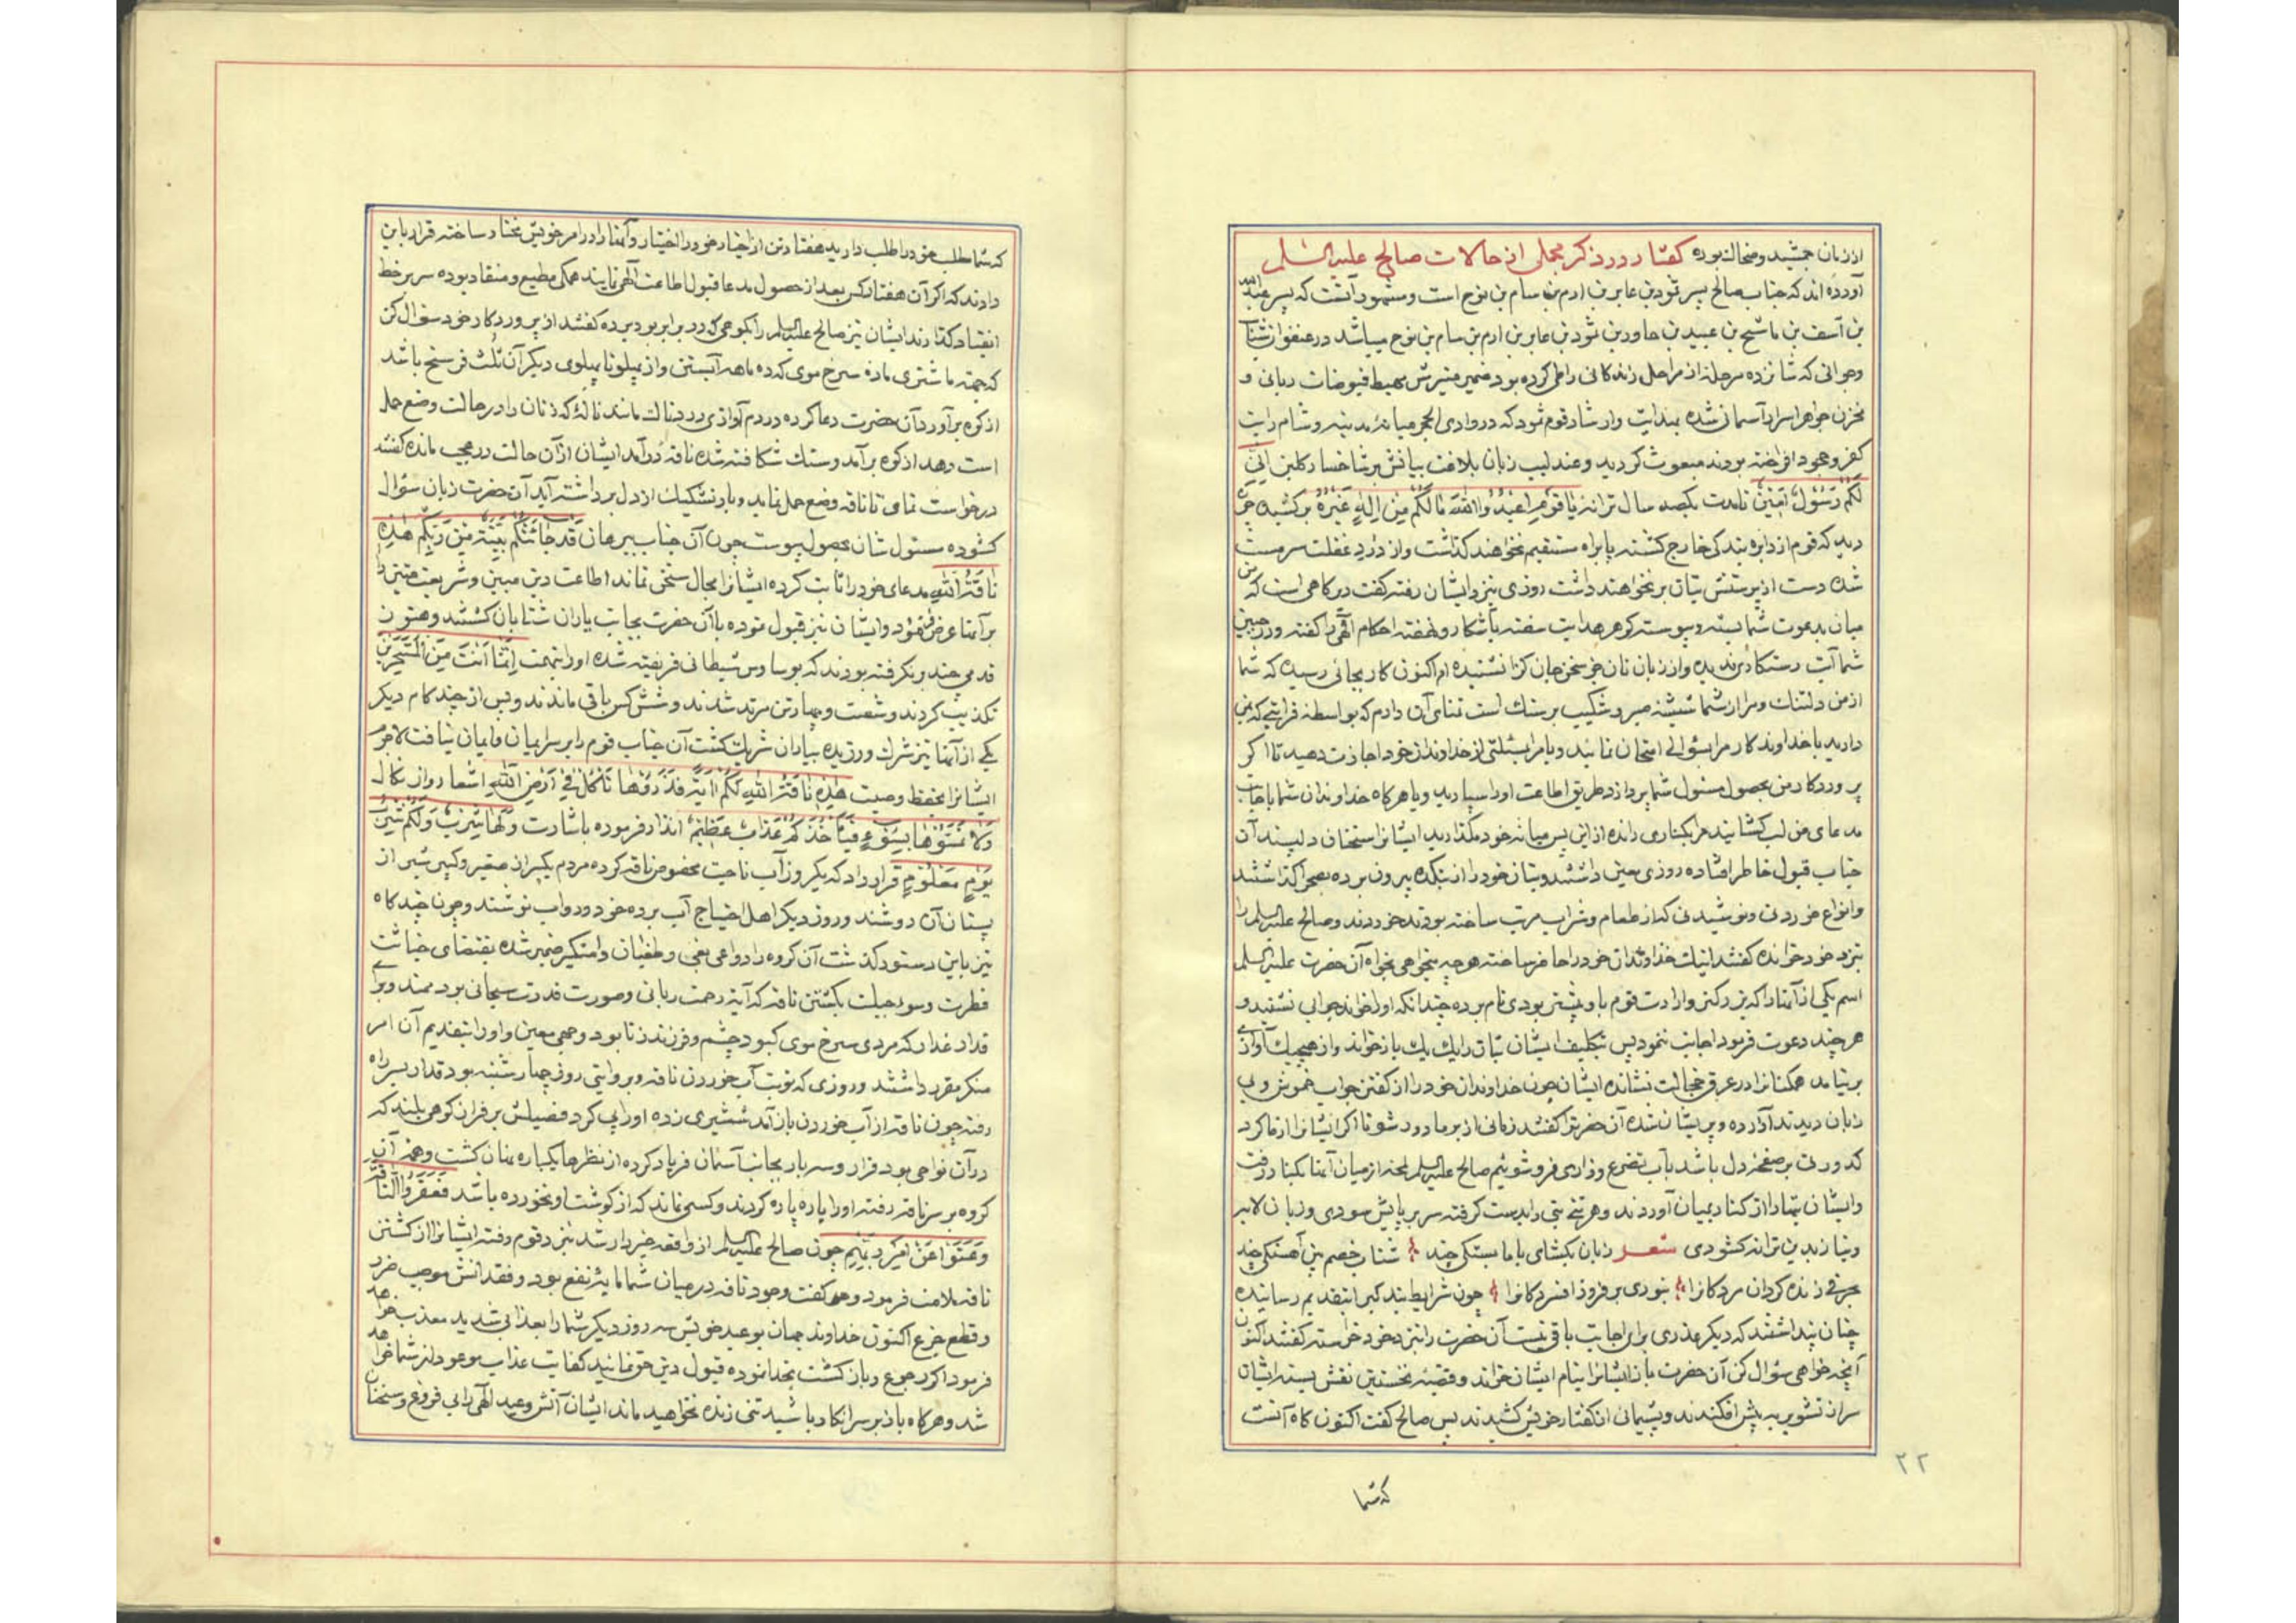 از زمان جمشید و ضحاک بوده گفتار در ذکر مجملی از حالات صالح علیه السلم
آورده اند که جناب صالح پسر ثمود بن عابر بن ارم بن سام بن نوح است و مشهور آنست که پسر عبید
بن آسف بن ماشیح بن عبید بن حاور بن ثمود بن عابر بن ارم بن سام بن نوح میباشد در عنفوان شباب
و جوانی که شانزده مرحله از مراحل زندگانی را طی کرده بود ضمیر منیرش مهبط فیوضات ربانی و
مخزن جواهر اسرار آسمانی شده بهدایت و ارشاد قوم ثمود که در وادی الحجر میانهٔ مدینه و شام رایت
کفر و جحود افراخته بودند مبعوث گردید و عندلیب زبان بلاغت بیانش بر شاخسار گلبن اِنّی
لَکُم رَسُولٌ اَمینٌ تا مدت یکصد سال ترانه یا قَومِ اعبُدُوا اللهَ ما لَکُم مِن اِلهٍ غَیرُهُ برکشیده چون
دید که قوم از دایره بندگی خارج گشته پا براه مستقیم نخواهند گذاشت و از درد غفلت سرمست
شده دست از پرستش بتان بر نخواهند داشت روزی بنزد ایشان رفته گفت دیرگاهی است که من
میان بدعوت شما بسته و پیوسته گوهر هدایت سفته باشکار و نهفته احکام الهی را گفته و در جبین
شما آیت رستگاری ندیده و از زبان تان جز سخن جان گزا نشنیده ام اکنون کار بجائی رسیده که شما
از من دلتنگ و مرا از شما شیشه صبر و شکیب بر سنگ است تمنای آن دارم که بواسطه قرابتی که بمن
دارید یا خداوندگار مرا بسؤالی امتحان نمائید و یا مرا بمسئلتی از خداوندان خود اجازت دهید تا اگر
پروردگار من بحصول مسئول شما پردازد طریق اطاعت او را سپارید و یا هرگاه خداوندان شما باجابت
مدعای من لب گشایند مرا بکناری رانده از این پس میانه خود مگذارید ایشانرا سخنان دلپسند آن
جناب قبول خاطر افتاده روزی معین داشتند و بتان خود را از بتکده بیرون برده بصحرا گذاشتند
و انواع خوردنی و نوشیدنی که از طعام و شراب مرتب ساخته بودند خوردند و صالح علیه السلم را
بنزد خود خوانده گفتند اینک خداوندان خود را حاضر ساخته هر چه میخواهی بخواه آن حضرت علیه السلم
اسم یکی از آنها را که بزرگتر و ارادت قوم باو بیشتر بودی نام برده چندانکه او را خواند جوابی نشنید و
هر چند دعوت فرمود اجابت ننمود پس بتکلیف ایشان بتان را یک یک باز خواند و از هیچیک آوازی
بر نیامد همگنانرا در عرق خجالت نشانده ایشان چون خداوندان خود را از گفتن جواب خموش و بی
زبان دیدند آزرده و پریشان شده آن حضرترا گفتند زمانی از بر ما دور شو تا اگر ایشانرا از ما گرد
کدورتی بر صفحه دل باشد بآب تضرع و زاری فرو شوئیم صالح علیه السلم لحنه از میان آنها بکنار رفت
و ایشان بتها را از کنار بمیان آوردند و هر تنی بتی را بدست گرفته سر بر پایش سودی و زبان لابه
و نیاز بدین ترانه گشودی شعر زبان بگشای با ما بستگی چند شتاب خصم بین آهستگی چند
بحرفی زنده گردان مردگانرا بنوری بر فروز افسردگانرا چون شرایط بندگی را بتقدیم رسانیده
چنان پنداشتند که دیگر عذری برای اجابت باقی نیست آن حضرت را بنزد خود خواسته گفتند اکنون
آنچه خواهی سؤال کن آن حضرت باز ایشانرا بنام ایشان خواند و قضیه نخستین نقش بسته ایشان
سر از تشویر به پیش افکندند و پشیمانی از گفتار خویش کشیدند پس صالح گفت اکنون گاه آنست
که شما
۲۲
که شما طلب حق در اطلب دارید هفتاد تن از اخیار خود را اختیار و آنها را در امر خویش مختار ساخته قرار باین
دادند که اگر آن هفتاد کس بعد از حصول مدعا قبول اطاعت الهی نمایند همگی مطیع و منقاد بوده سر بر خط
انقیاد گذارند ایشان نیز صالح علیه السلم را بکوهی که در برابر بود برده گفتند از پروردگار خود سؤال کن
که جهة ما شتری ماده سرخ موی که ده ماهه آبستن و از پهلو تا پهلوی دیگر آن ثلث فرسخ باشد
از کوه بر آورد آن حضرت دعا کرده در دم آوازی دردناک مانند ناله که زنان را در حالت وضع حمل
است دهد از کوه برآمد و سنگ شکافته شده ناقه در آمد ایشان از آن حالت در عجب مانده گفتند
درخواست نمای تا ناقه وضع حمل نماید و بار تشکیک از دل برداشته آید آن حضرت زبان سؤال
گشوده مسئول شان بحصول پیوست چون آن جناب ببرهان قَد جائَتکُم بَیِّنَةٌ مِن رَبِّکُم هذِهِ
ناقَةُ اللهِ مدعای خود را ثابت کرده ایشانرا مجال سخنی نماند اطاعت دین مبین و شریعت متین را
بر آنها عرض فرمود و ایشان نیز قبول نموده با آن حضرت بجانب یاران شتابان گشتند و هنوز
قدمی چند بر نگرفته بودند که بوساوس شیطانی فریفته شده او را بتهمت اِنَّما اَنتَ مِنَ المُسَحَّرینَ
تکذیب کردند و شصت و چهار تن مرتد شدند و شش کس باقی ماندند و پس از چند گام دیگر
یکی از آنها نیز شرک ورزیده بیاران شریک گشت آن جناب قوم را بر سر ایمان و ایمان نیافت لاجرم
ایشانرا بحفظ وصیت هذِهِ ناقَةُ اللهِ لَکُم آیَةً فَذَرُوها تَأکُل فی اَرضِ اللهِ اشعار و از نکال
وَلا تَمَسُّوها بِسُوءٍ فَیَأخُذَکُم عَذابٌ عَظیمٌ انذار فرموده باشارت وَ لَها شِربٌ وَلَکُم شِربُ
یَومٍ مَعلُومٍ قرار داد که یکروز آب ناحیت مخصوص ناقه کرده مردم یکسر از صغیر و کبیر شیر از
پستان آن دوشند و روز دیگر اهل احتیاج آب برده خود و دواب نوشند و چون چند گاه
نیز باین دستور گذشت آن گروه را دواعی بغی و طغیان دامنگیر ضمیر شده بقتضای خباثت
فطرت و سوء جبلت بکشتن ناقه که آیهٔ رحمت ربانی و صورت قدرت سبحانی بود
قدار غدار که مردی سرخ موی کبود چشم و فرزند زنا بود و جمعی معین و او را بتقدیم آن امر
منکر مقرر داشتند و روزی که نوبت آب خوردن ناقه و بروایتی روز چهارشنبه بود قدار بسر راه
رفته چون ناقه از آب خوردن باز آمد شمشیری زده او را پی کرد فصیلش بر فراز کوهی بلند که
در آن نواحی بود فرار و سه بار بجانب آسمان فریاد کرده از نظرها یکباره نهان گشت و همه آن
گروه بر سر ناقه رفته او را پاره پاره کردند و کسی نماند که از گوشت او نخورده باشد فَعَقَرُوا النّاقَةَ
وَعَتَوا عَن اَمرِ رَبِّهِم چون صالح علیه السلم از واقعه خبردار شد بنزد قوم رفته ایشانرا از کشتن
ناقه ملامت فرمود و گفت وجود ناقه در میان شما مایهٔ نفع بود و فقدانش موجب ضرر
و قطع جزع اکنون خداوند جهان بوعید خویش سه روز دیگر شما را بعذابی شدید معذب خواهد
فرمود اگر رجوع و باز گشت بخدا نموده قبول دین حق نمائید کفایت عذاب موعود از شما خواهد
شد و هرگاه باز بر سر انکار باشید تنی زنده نخواهید ماند ایشان آتش وعید الهی را بی فروغ و سخنان